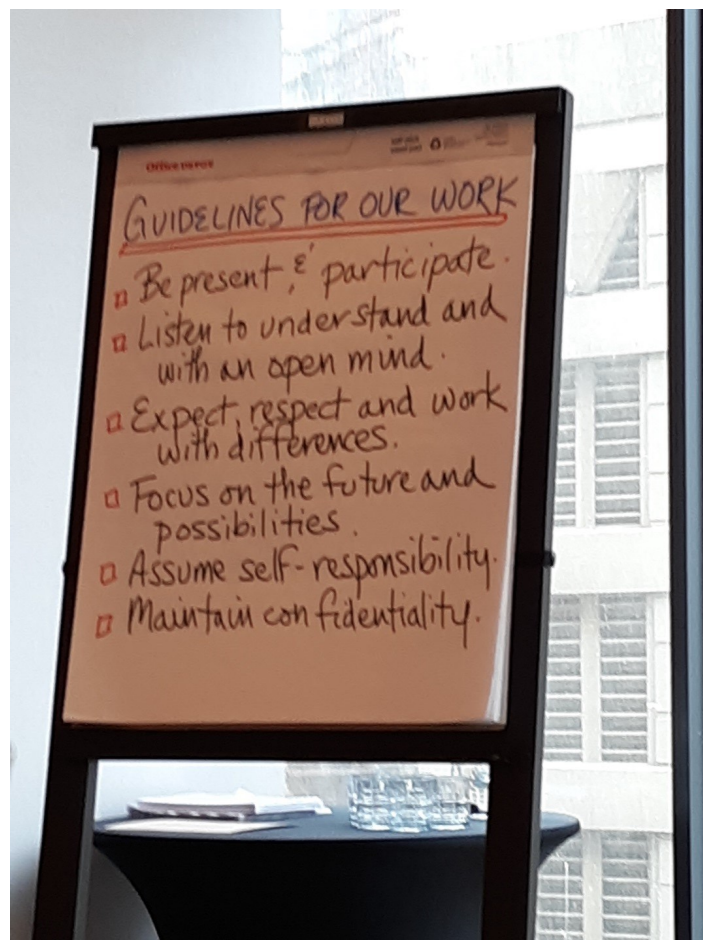 Office DEPOT
GUIDELINES FOR OUR WORK
Be present, & participate.
Listen to understand and
with an open mind.
Expect, respect and work
with differences.
Focus on the future and
possibilities.
Assume self-responsibility.
Maintain confidentiality.